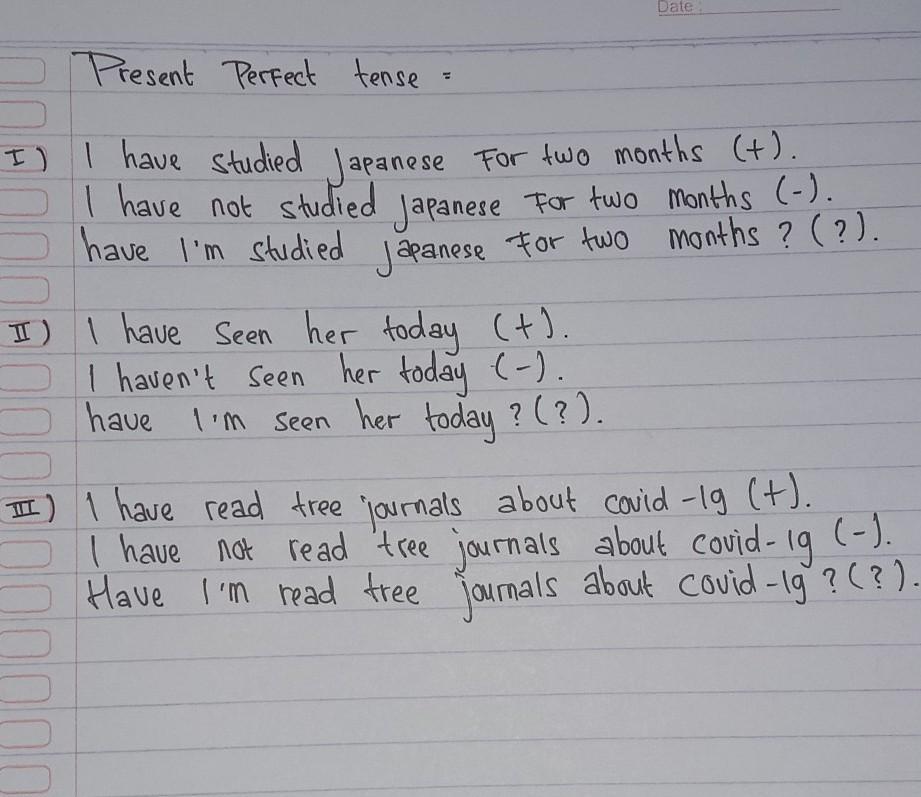 Date :
Present Perfect tense =
I) I have studied Japanese For two months (+).
I have not studied Japanese For two months (-).
have I'm studied japanese for two months ? (?).
II) I have Seen her today (+).
I haven't Seen her today (-).
have I'm seen her today ? (?).
III) I have read tree journals about covid -19 (+).
I have not read tree journals about covid- 19 (-).
Have I'm read tree journals about covid -19 ? (?).